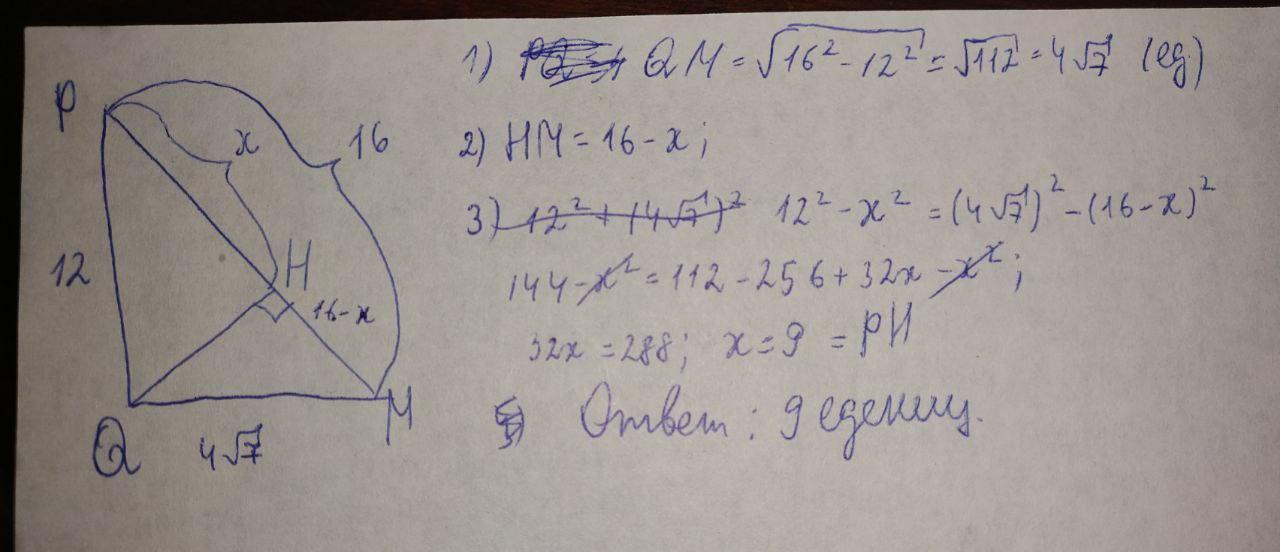 P
x
16
12
H
16-x
Q
4√7
M
1) QM = √16² - 12² = √112 = 4√7 (ед.)
2) HM = 16 - x;
3) 12² + (4√7)² 12² - x² = (4√7)² - (16 - x)²
144 - x² = 112 - 256 + 32x - x²;
32x = 288; x = 9 = PH
Ответ: 9 едениц.